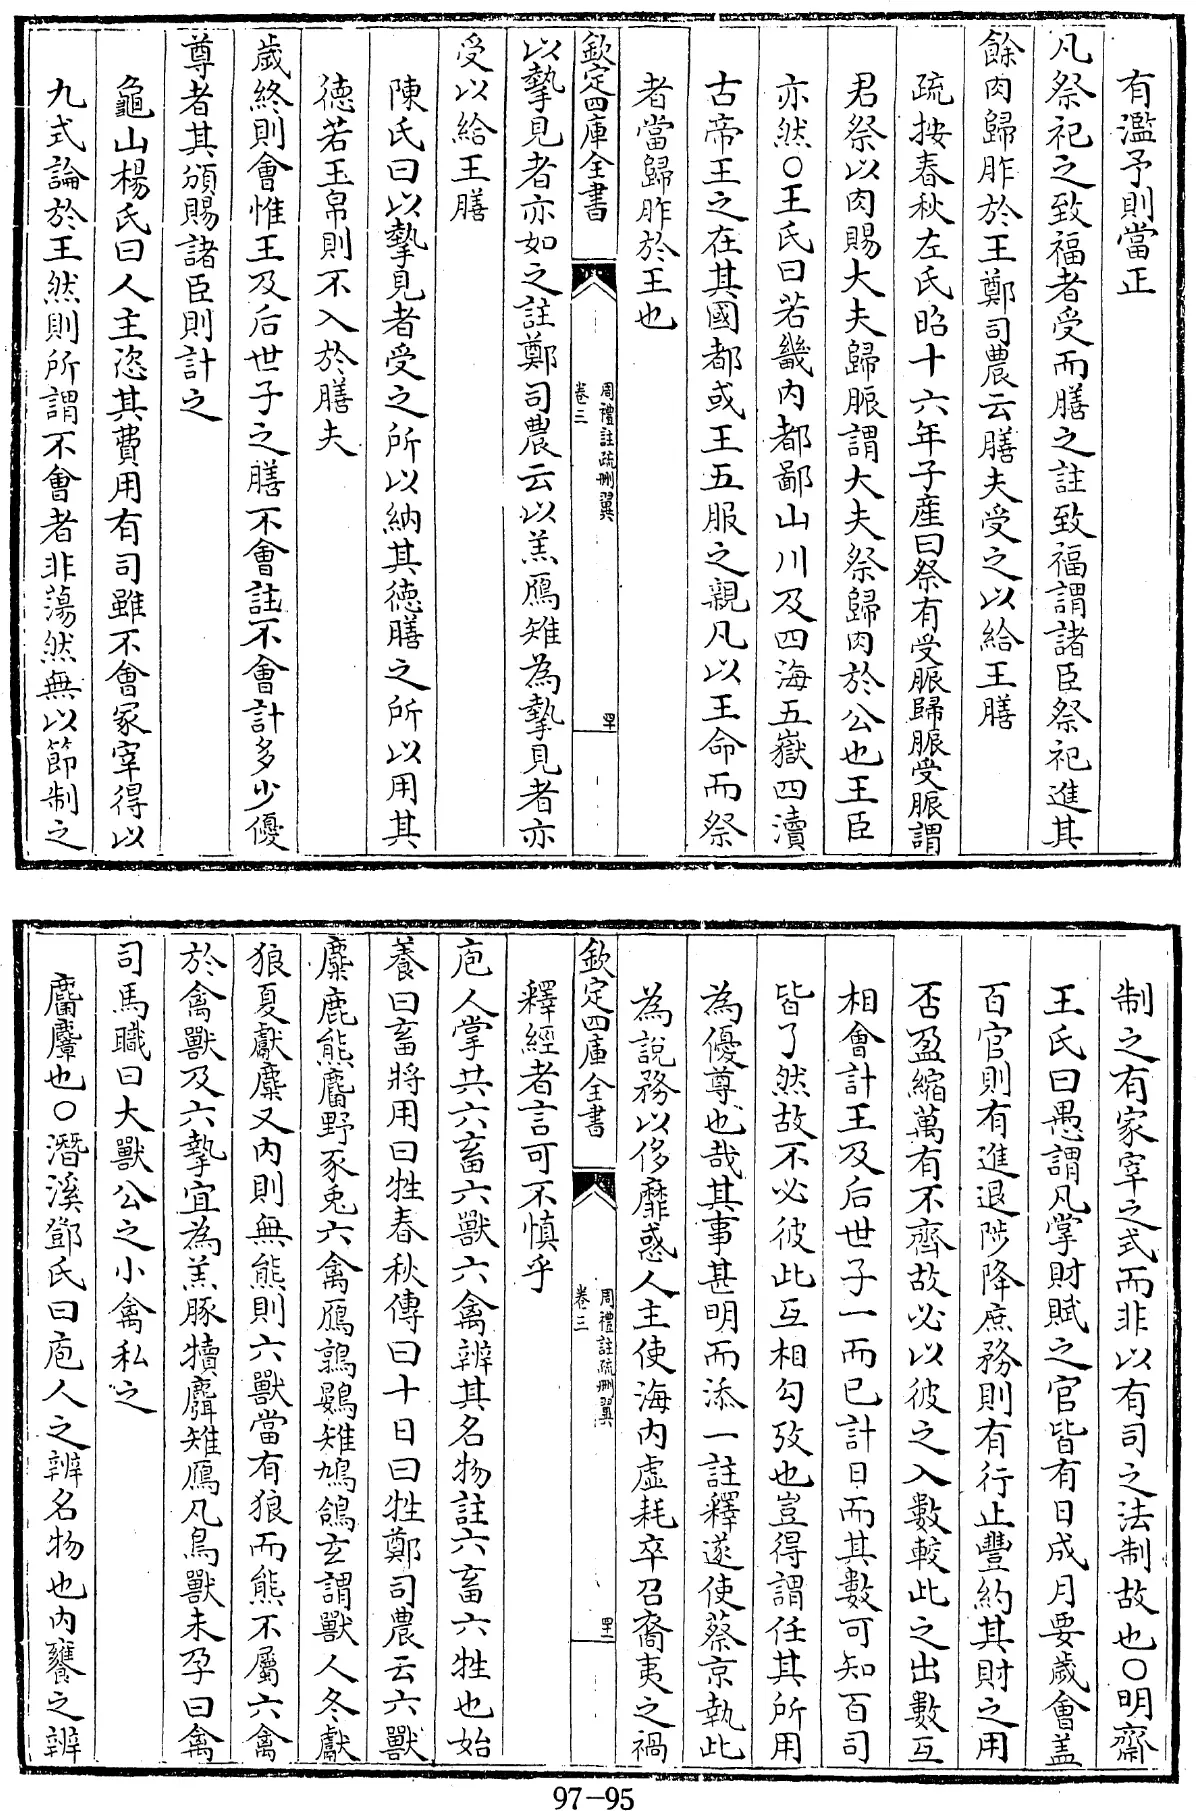 有濫予則當正
凡祭祀之致福者受而膳之註致福謂諸臣祭祀進其
餘肉歸胙於王鄭司農云膳夫受之以給王膳
疏按春秋左氏昭十六年子產曰祭有受脤歸脤受脤謂
君祭以肉賜大夫歸脤謂大夫祭歸肉於公也王臣
亦然〇王氏曰若畿内都鄙山川及四海五嶽四瀆
古帝王之在其國都或王五服之親凡以王命而祭
者當歸胙於王也
欽定四庫全書
周禮註疏刪翼
卷三
四十
以摯見者亦如之註鄭司農云以羔鴈雉為摯見者亦
受以給王膳
陳氏曰以摯見者受之所以納其德膳之所以用其
德若玉帛則不入於膳夫
歲終則會惟王及后世子之膳不會註不會計多少優
尊者其頒賜諸臣則計之
龜山楊氏曰人主恣其費用有司雖不會冢宰得以
九式論於王然則所謂不會者非蕩然無以節制之
制之有冢宰之式而非以有司之法制故也〇明齋
王氏曰愚謂凡掌財賦之官皆有日成月要歲會蓋
百官則有進退陟降庶務則有行止豐約其財之用
否盈縮萬有不齊故必以彼之入數較此之出數互
相會計王及后世子一而已計日而其數可知百司
皆了然故不必彼此互相勾攷也豈得謂任其所用
為優尊也哉其事甚明而添一註釋遂使蔡京執此
為說務以侈靡惑人主使海内虛耗卒召裔夷之禍
欽定四庫全書
周禮註疏刪翼
卷三
四十一
釋經者言可不慎乎
庖人掌共六畜六獸六禽辨其名物註六畜六牲也始
養曰畜將用曰牲春秋傳曰十日曰牲鄭司農云六獸
麋鹿熊麕野豕兎六禽鴈鶉鷃雉鳩鴿玄謂獸人冬獻
狼夏獻麋又内則無熊則六獸當有狼而熊不屬六禽
於禽獸及六摯宜為羔豚犢麛雉鴈凡鳥獸未孕曰禽
司馬職曰大獸公之小禽私之
麕麞也〇潛溪鄧氏曰庖人之辨名物也内饔之辨
97-95